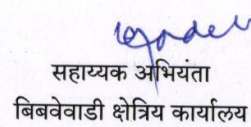 सहाय्यक अभियंता
बिबवेवाडी क्षेत्रिय कार्यालय